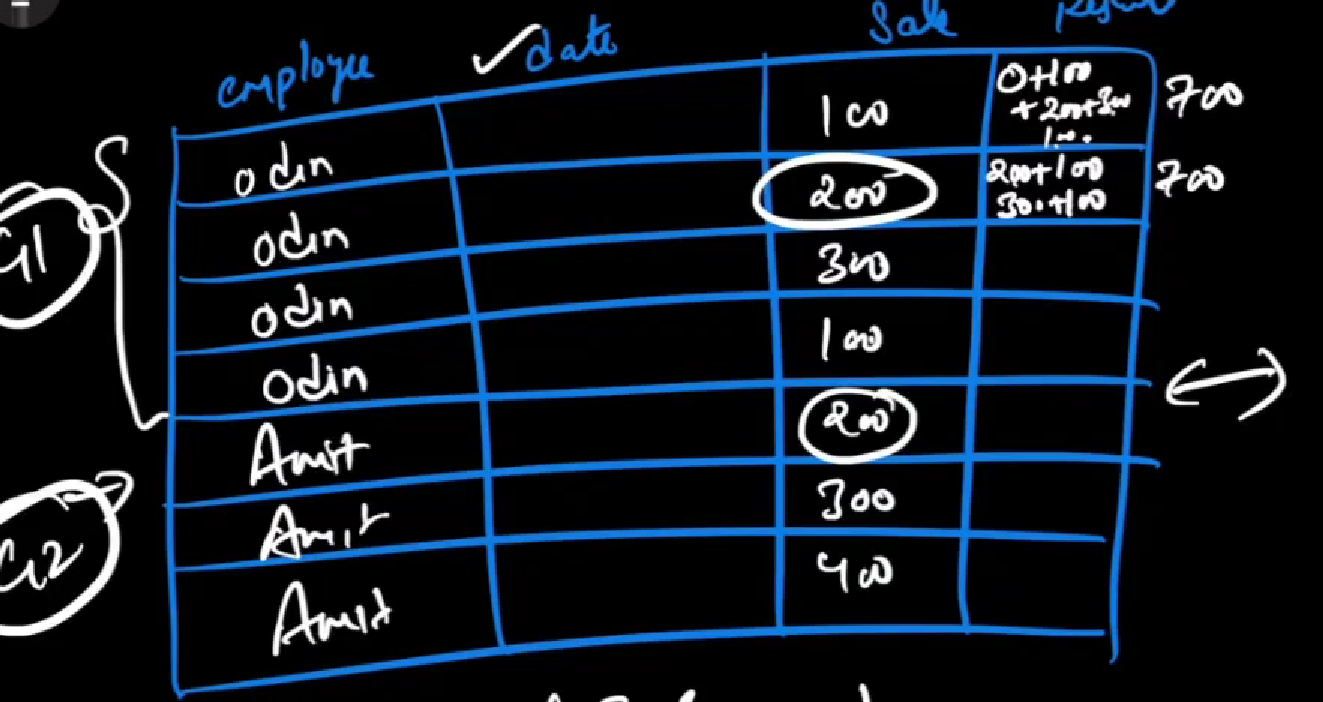 employee ✓date Sale
odin 100 0+100 +200+300 100 700
odin 200 200+100 300+100 700
odin 300
odin 100
Amit 200
Amit 300
Amit 400
G1
G2